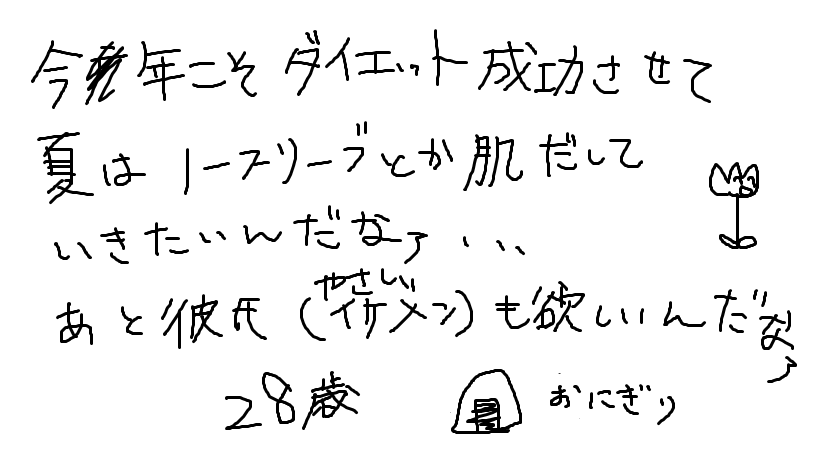 今年こそダイエット成功させて
夏はノースリーブとか肌だして
いきたいんだなァ...
あと彼氏(やさしいイケメン)も欲しいんだなァ
28歳 おにぎり